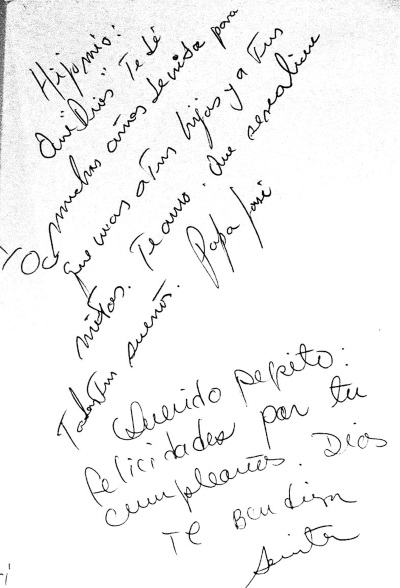 Hijo mío:
Que Dios Te dé
muchos años de vida para
que veas a Tus hijos y a Tus
nietos. Te amo. Que se realicen
Todos Tus sueños. Papa José
Querido pepito:
felicidades por tu
cumpleaños. Dios
Te Bendiga